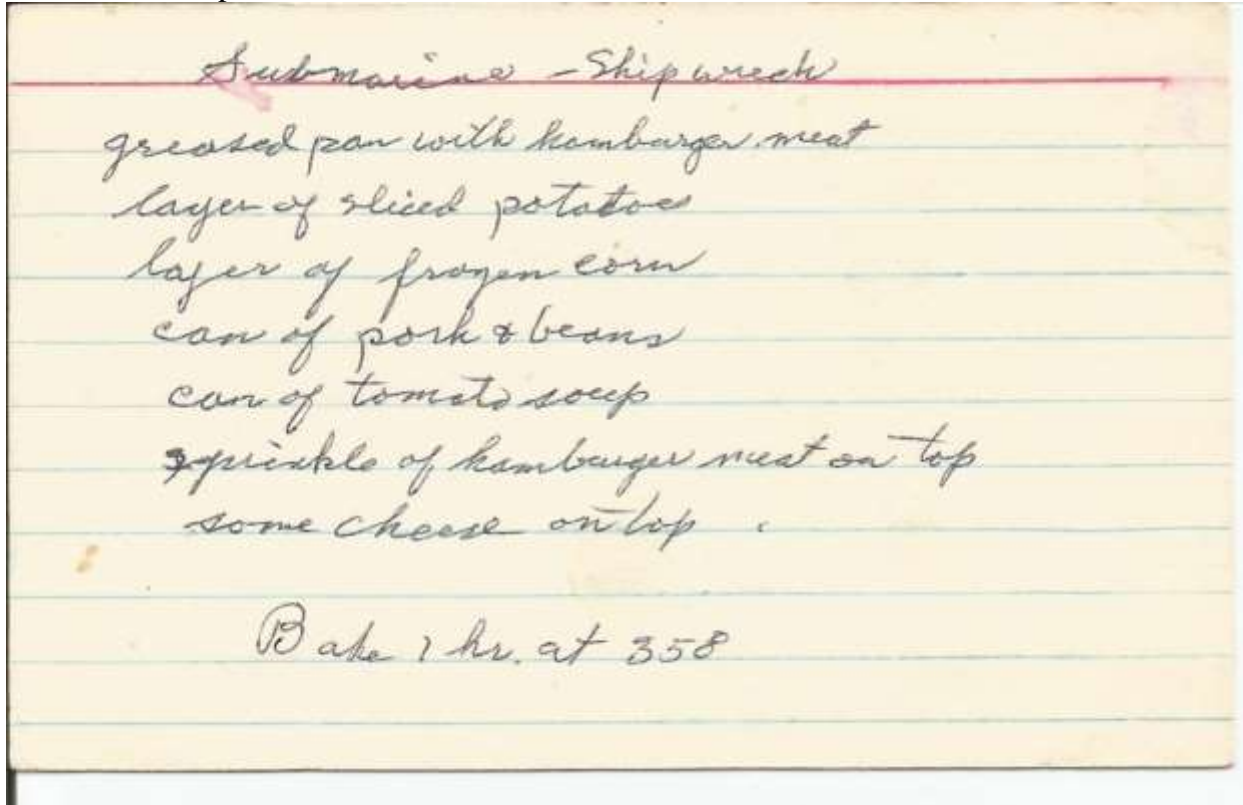 Submarine - Shipwreck
greased pan with hamburger meat
layer of sliced potatoes
layer of frozen corn
can of pork & beans
can of tomato soup
sprinkle of hamburger meat on top
some cheese on top.
Bake 1 hr. at 358